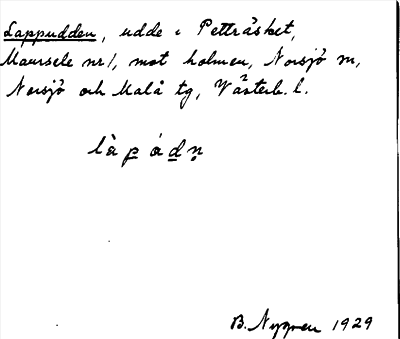 Lappudden, udde i Petträsket,
Maursele nr 1, mot holmen, Norsjö sn,
Norsjö och Malå tg, Västerb. l.
B. Nygren 1929